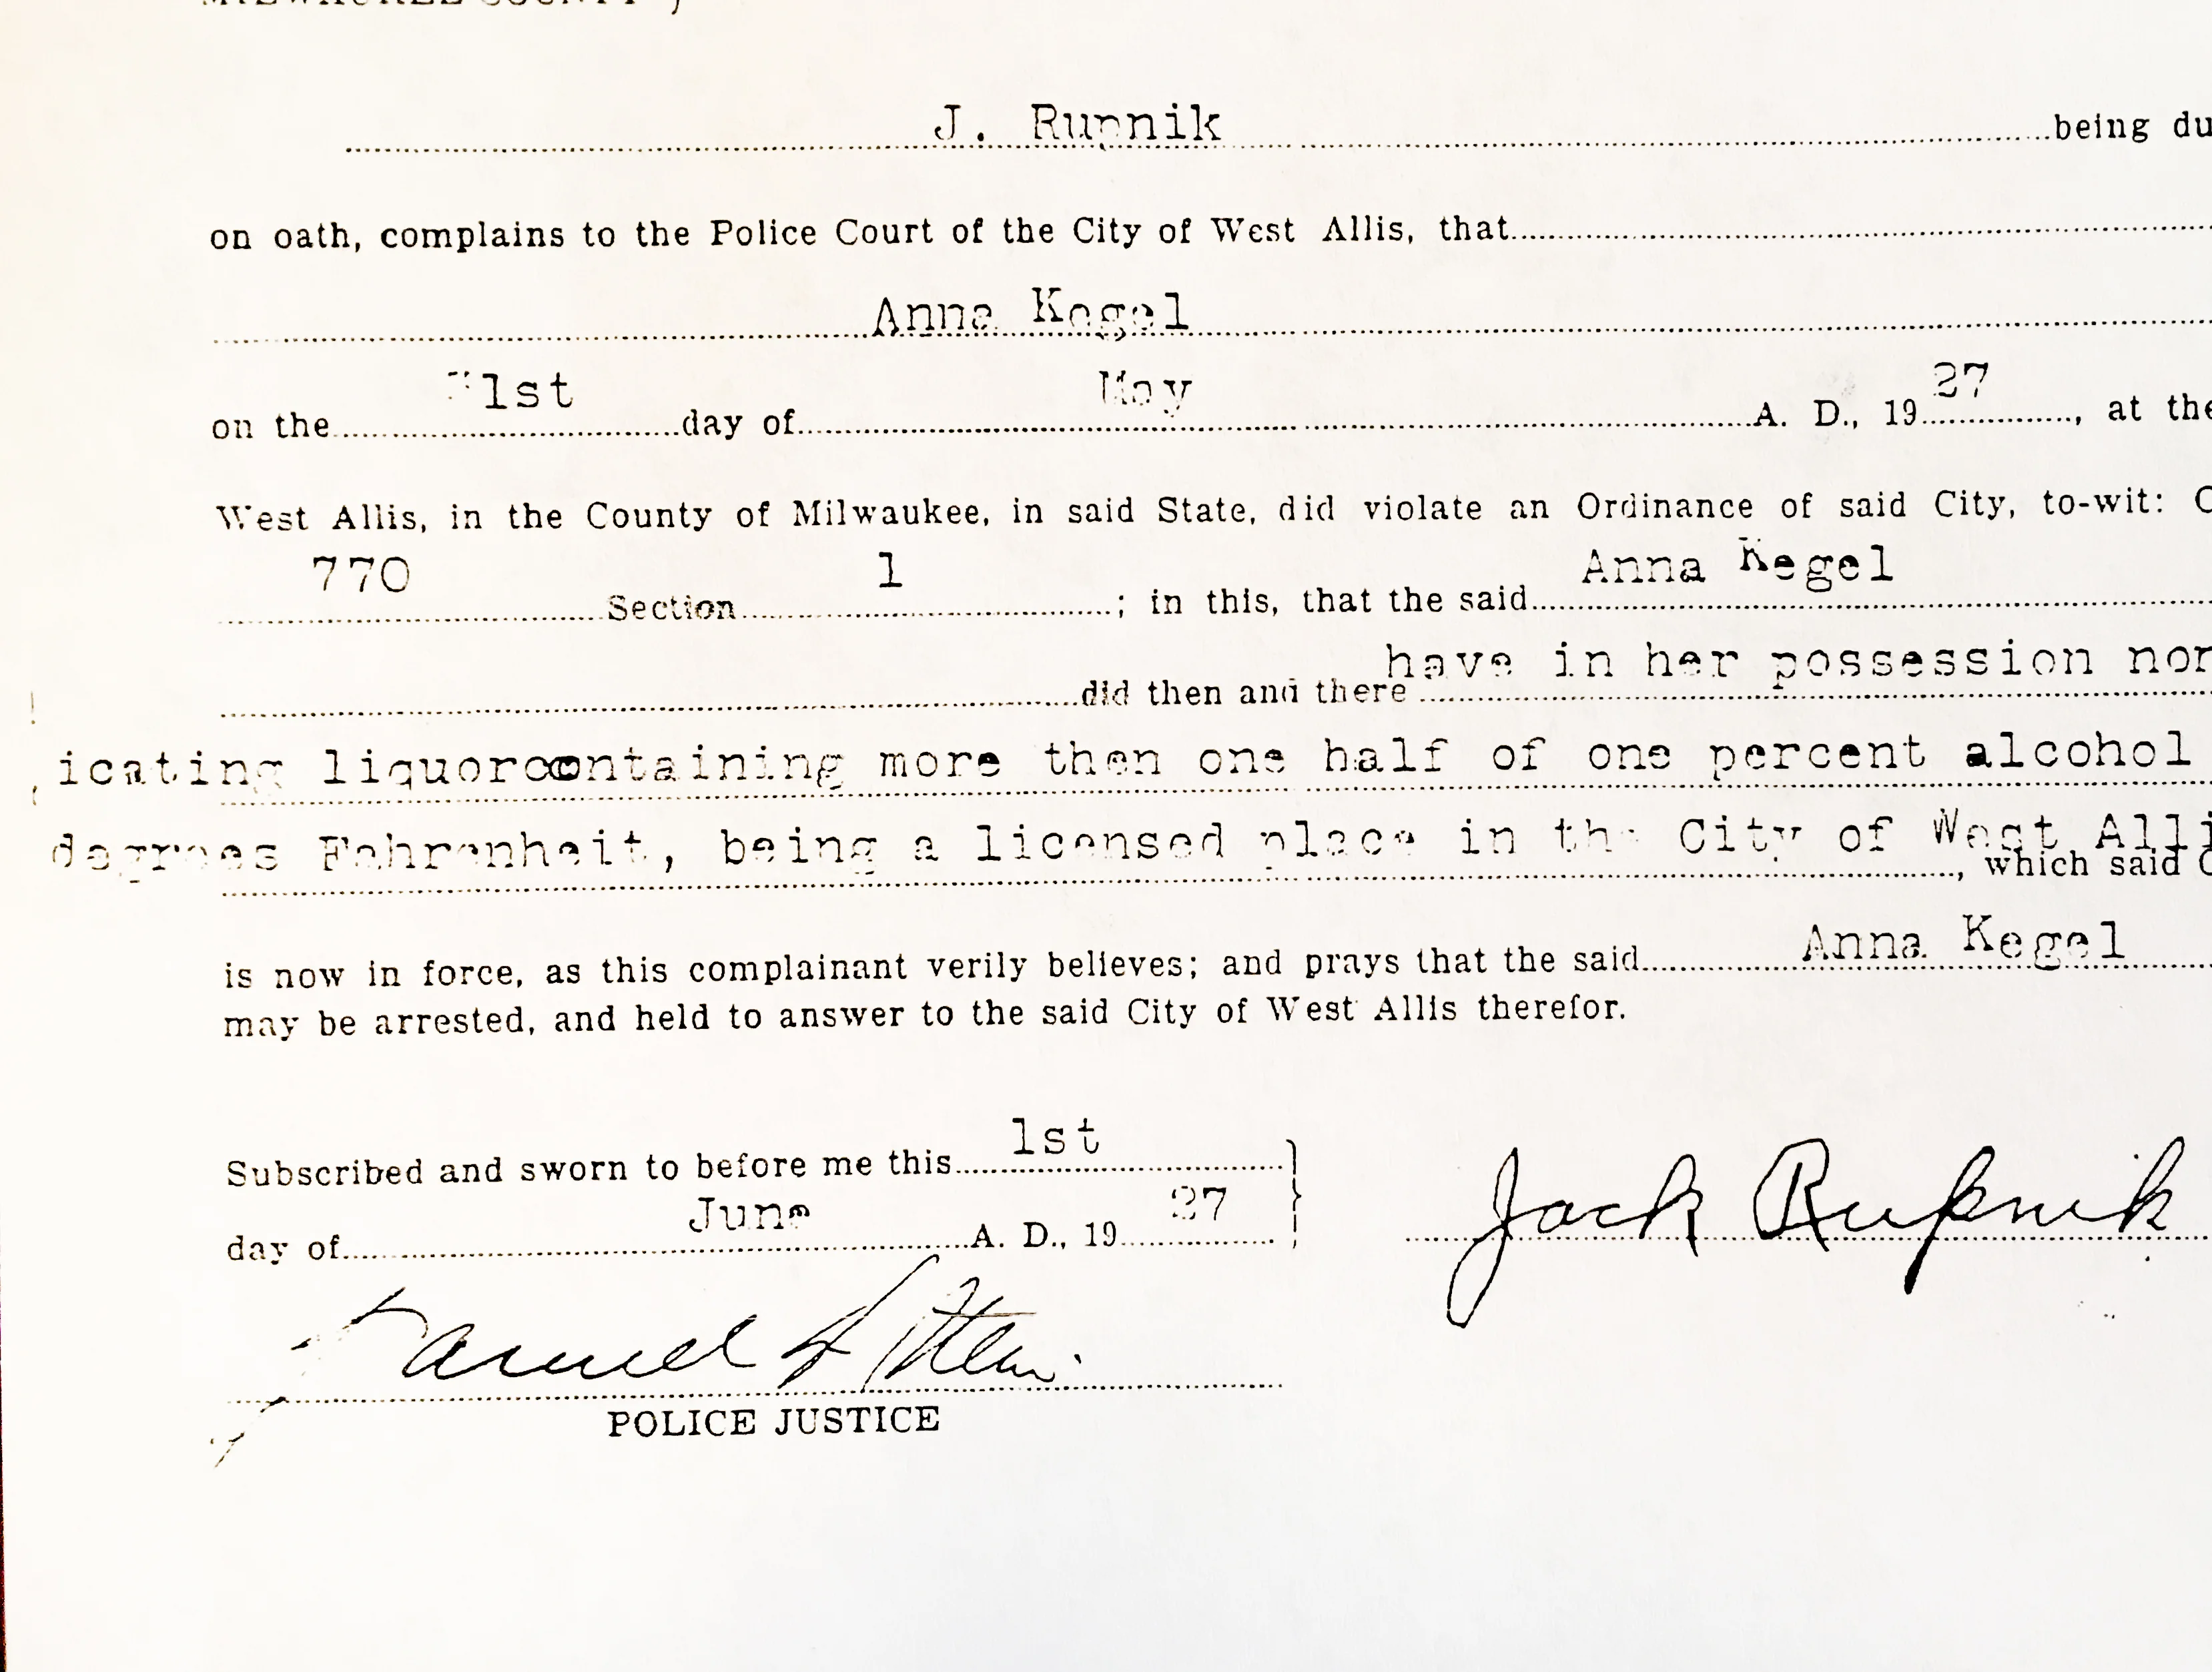 MILWAUKEE COUNTY )
J. Rupnik being du
on oath, complains to the Police Court of the City of West Allis, that
Anna Kegel
on the 31st day of May A. D., 1927, at the
West Allis, in the County of Milwaukee, in said State, did violate an Ordinance of said City, to-wit: O
770 Section 1 ; in this, that the said Anna Kegel
did then and there have in her possession non
icating liquorcontaining more then one half of one percent alcohol
degrees Fahrenheit, being a licensed place in the City of West Alli
, which said O
is now in force, as this complainant verily believes; and prays that the said Anna Kegel
may be arrested, and held to answer to the said City of West Allis therefor.
Subscribed and sworn to before me this 1st
day of June A. D., 1927
Jack Rupnik
POLICE JUSTICE